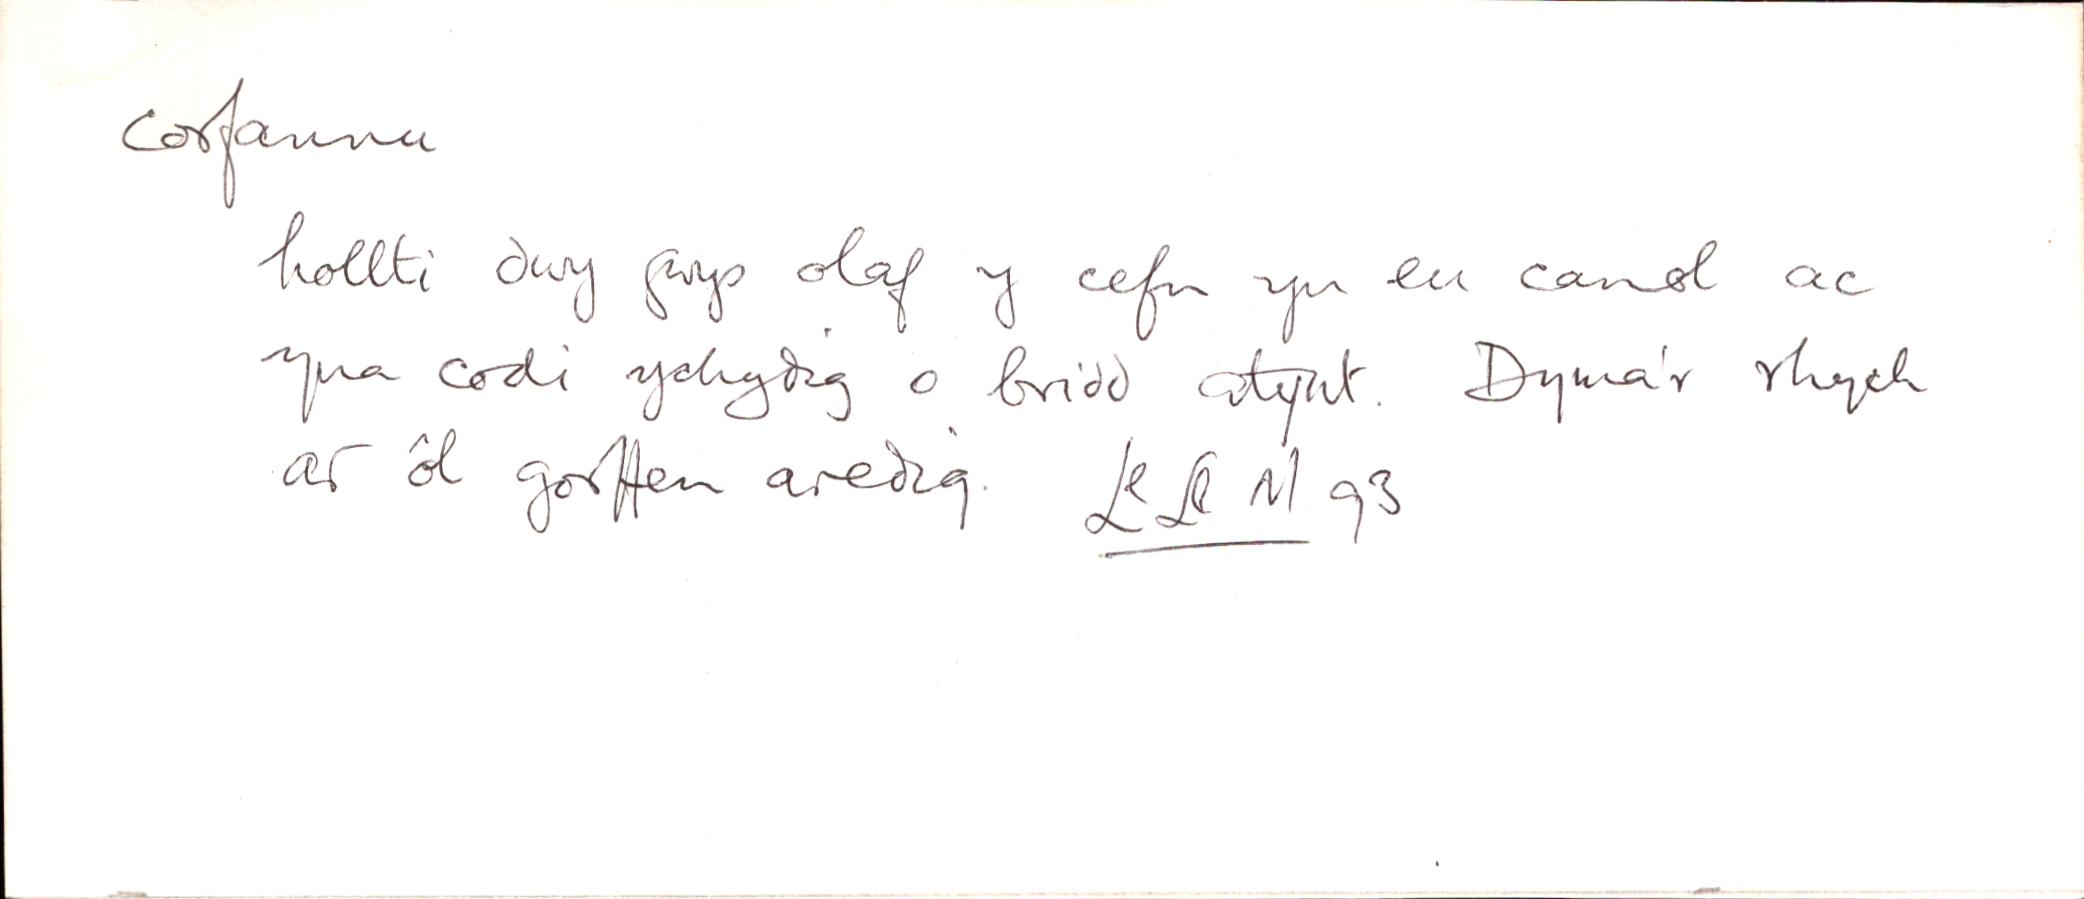 corfannu
hollti dwy gwys olaf y cefn yn eu canol ac
yna codi ychydig o bridd atynt. Dyma'r rhych
ar ôl gorffen aredig. LlLlM 93